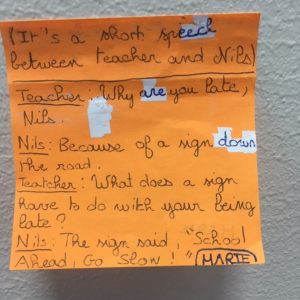 (It's a short speech
between teacher and Nils)
Teacher: Why are you late,
Nils.
Nils: Because of a sign down
the road.
Teatcher: What does a sign
have to do with your being
late?
Nils: The sign said, "School
Ahead, Go Slow!" MARIE